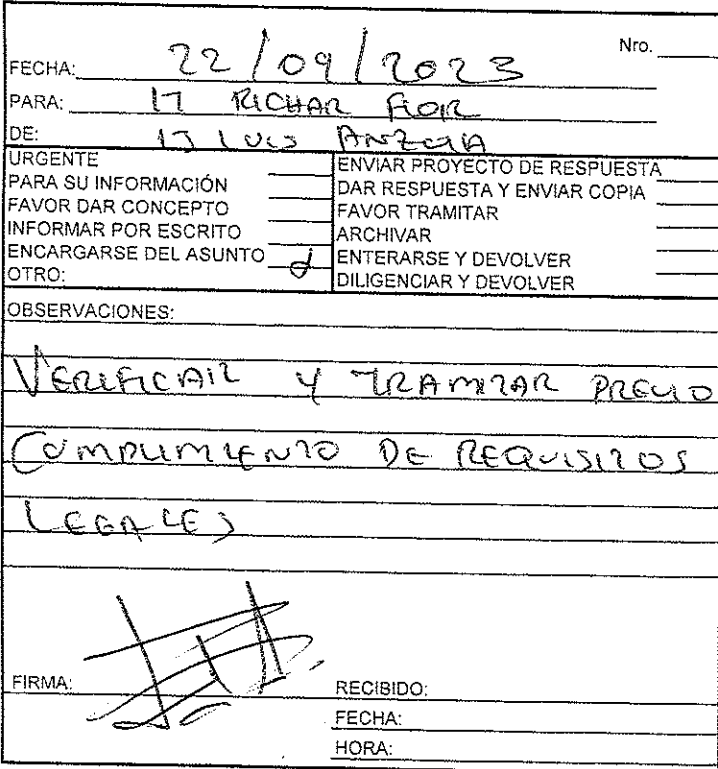 Nro.
FECHA: 22/09/2023
PARA: IT RICHAR FLOR
DE: IJ LUIS ANZOLA
URGENTE
PARA SU INFORMACIÓN
FAVOR DAR CONCEPTO
INFORMAR POR ESCRITO
ENCARGARSE DEL ASUNTO
OTRO:
ENVIAR PROYECTO DE RESPUESTA
DAR RESPUESTA Y ENVIAR COPIA
FAVOR TRAMITAR
ARCHIVAR
ENTERARSE Y DEVOLVER
DILIGENCIAR Y DEVOLVER
OBSERVACIONES:
VERIFICAR Y TRAMITAR PREVIO
CUMPLIMIENTO DE REQUISITOS
LEGALES
FIRMA:
RECIBIDO:
FECHA:
HORA: